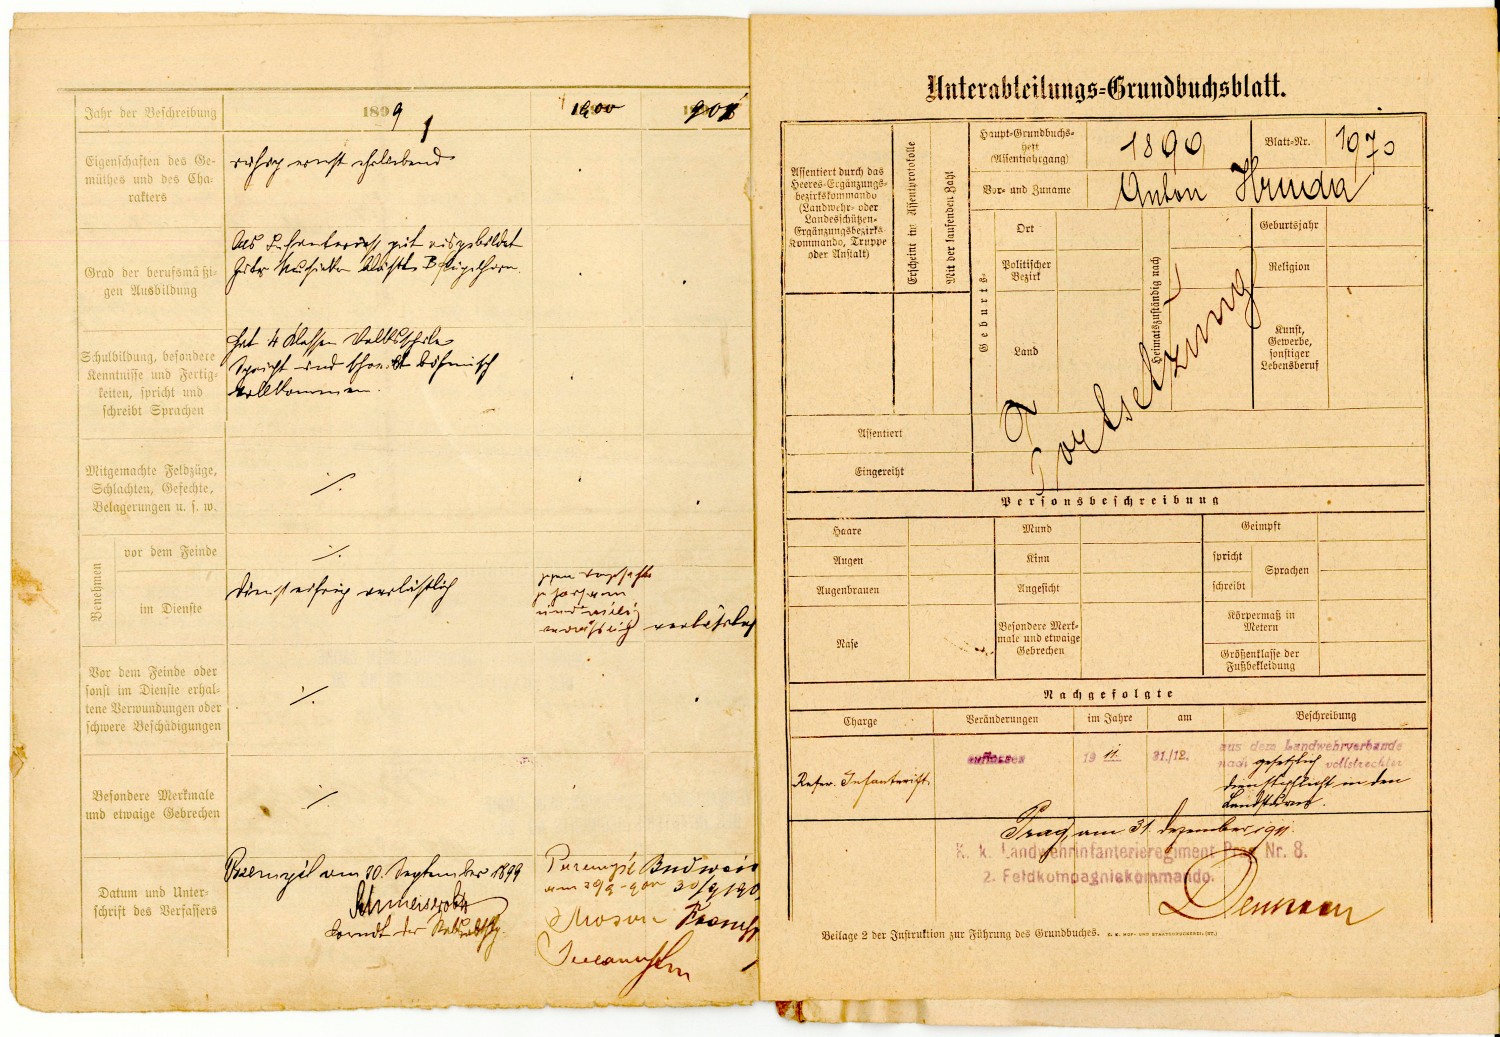 Jahr der Beschreibung
1899
1900
1901
Eigenschaften des Ge-
müthes und des Cha-
rakters
ruhig ernst ehrliebend
Grad der berufsmäßi-
gen Ausbildung
gut ausgebildet
Schulbildung, besondere
Kenntnisse und Fertig-
keiten, spricht und
schreibt Sprachen
hat 4 Klassen Volksschule
Spricht und schreibt böhmisch
vollkommen.
Mitgemachte Feldzüge,
Schlachten, Gefechte,
Belagerungen u. s. w.
./.
Benehmen
vor dem Feinde
./.
im Dienste
diensteifrig verläßlich
gegen Vorgesetzte
gehorsam
und willig
verläßlich
Vor dem Feinde oder
sonst im Dienste erhal-
tene Verwundungen oder
schwere Beschädigungen
./.
Besondere Merkmale
und etwaige Gebrechen
./.
Datum und Unter-
schrift des Verfassers
Przemysl am 30. September 1899
Przemysl
am 29/9 900
Budweis
30/9 190
Unterabteilungs-Grundbuchsblatt.
Assentiert durch das
Heeres-Ergänzungs-
bezirkskommando
(Landwehr- oder
Landesschützen-
Ergänzungsbezirks-
Kommando, Truppe
oder Anstalt)
Erscheint im Assentprotokolle
Mit der laufenden Zahl
Haupt-Grundbuchs-
heft
(Assentjahrgang)
1890
Blatt-Nr.
1970
Vor- und Zuname
Anton Hruda
Geburts-
Ort
Politischer
Bezirk
Land
Heimatszuständig nach
Geburtsjahr
Religion
Kunst,
Gewerbe,
sonstiger
Lebensberuf
Fortsetzung
Assentiert
Eingereiht
Personsbeschreibung
Haare
Mund
Geimpft
Augen
Kinn
spricht
Sprachen
Augenbrauen
Angesicht
schreibt
Nase
Besondere Merk-
male und etwaige
Gebrechen
Körpermaß in
Metern
Größenklasse der
Fußbekleidung
Nachgefolgte
Charge
Veränderungen
im Jahre
am
Beschreibung
Reserv. Infanterist
1911.
31./12.
aus dem Landwehrverbande
nach gesetzlich vollstreckter
Dienstpflicht in den
Landsturm.
Prag, am 31. Dezember 1911.
K. k. Landwehrinfanterieregiment Prag Nr. 8.
2. Feldkompagniekommando.
Beilage 2 der Instruktion zur Führung des Grundbuches. K. K. HOF- UND STAATSDRUCKEREI. (ST.)